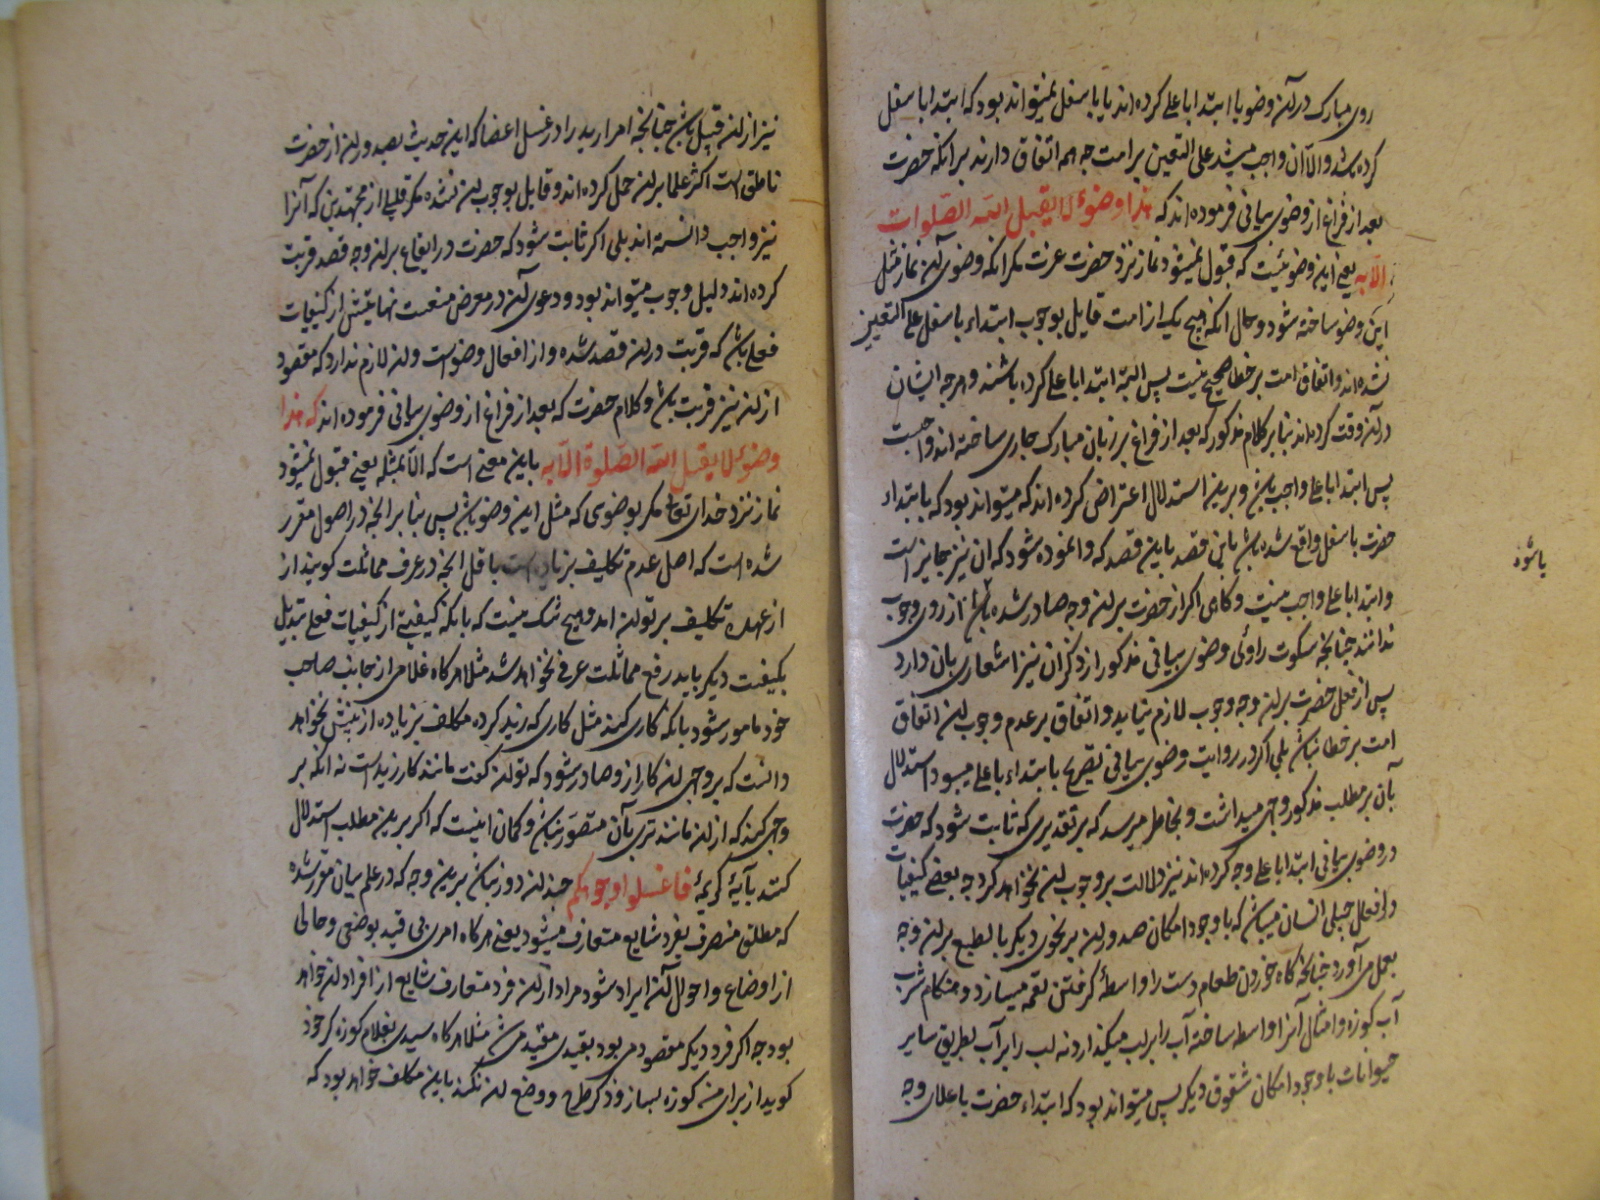 روی مبارک در آن وضو یا ابتدا باعلی کرده‌اند یا باسفل نمیتواند بود که ابتدا باسفل
کرده باشد والا آن واجب میشد علی التعیین بر امت چه همه اتفاق دارند بر آنکه حضرت
بعد از فراغ از وضوی بیانی فرموده‌اند که هذا وضوء لا یقبل الله الصلوات
الا به یعنی این وضوئیست که قبول نمیشود نماز نزد حضرت عزت مگر آنکه وضوی آن نماز مثل
این وضو ساخته شود و حال آنکه هیچ یک از امت قایل بوجوب ابتداء باسفل علی التعیین
نشده‌اند و اتفاق امت بر خطا صحیح نیست پس البته ابتدا باعلی کرده باشند و هرچه ایشان
در آن وقت کرده‌اند بنا بر کلام مذکور که بعد از فراغ بر زبان مبارک جاری ساخته‌اند واجبست
پس ابتدا باعلی واجب باشد و برین استدلال اعتراض کرده‌اند که میتواند بود که بابتداء
حضرت باسفل واقع شده باشد باین قصد که وانموده شود که آن نیز جایز است
وابتدا باعلی واجب نیست و گاهی اگر از حضرت بر آن وجه صادر شده باشد از روی وجوب
ندانند چنانچه سکوت راوئی وضوی بیانی مذکور از ذکر آن نیز اشعاری بان دارد
پس از فعل حضرت بر آن وجه وجوب لازم نیاید و اتفاق بر عدم وجوب این اتفاق
امت بر خطا نباشد بلی اگر در روایت وضوی بیانی تصریح بابتداء باعلی میبود استدلال
بآن بر مطلب مذکور وجهی میداشت و بخاطر میرسد که بر تقدیری که ثابت شود که حضرت
در وضوی بیانی ابتدا باعلی وجه کرده‌اند نیز دلالت بر وجوب آن نخواهد کرد چه بعضی کیفیات
در افعال جبلی انسان میباشد که با وجود امکان صدور آن بر نحوی دیگر بالطبع بر آن وجه
بعمل می‌آورد چنانچه گاه خوردن طعام دست را واسطهٔ گرفتن لقمه میسازد و هنگام شرب
آب کوزه و امثال آنرا واسطه ساخته آب را بر لب میگذارد نه لب را بر آب بطریق سایر
حیوانات با وجود امکان شقوق دیگر پس میتواند بود که ابتداء حضرت باعلای وجه
باشد
نیز از آن قبیل باشد چنانچه امرار ید را در غسل اعضا که این حدیث بصدور آن از حضرت
ناطق است اکثر علما بر آن حمل کرده‌اند و قایل بوجوب آن نشده مگر قلیلی از مجتهدین که آنرا
نیز واجب دانسته‌اند بلی اگر ثابت شود که حضرت در ایقاع بر آن وجه قصد قربت
کرده‌اند دلیل وجوب میتواند بود و دعوی آن در معرض منعست نهایتش از کیفیات
فعلی باشد که قربت در آن قصد شده و از افعال وضوست و آن لازم ندارد که مقصود
از آن نیز قربت باشد و کلام حضرت که بعد از فراغ از وضوی بیانی فرموده‌اند که هذا
وضوء لا یقبل الله الصلوة الا به باین معنی است که الا بمثله یعنی قبول نمیشود
نماز نزد خدای تعالی مگر بوضوی که مثل این وضو باشد پس بنا بر آنچه در اصول مقرر
شده است که اصل عدم تکلیف بزیاده است باقل آنچه در عرف مماثلت گویند از
از عهدهٔ تکلیف بر توان آمد و هیچ شک نیست که بآنکه کیفیتی از کیفیات فعلی تبدیل
بکیفیت دیگر یابد رفع مماثلت عرفی نخواهد شد مثلا هرگاه غلامی از جانب صاحب
خود مامور شود بآنکه کاری کند مثل کاری که زید کرده مکلف بزیاده ازینش نخواهد
دانست که بروجهی آن کار ازو صادر شود که توان گفت مانند کار زید است نه آنکه بر
وجهی کند که از آن مانندتری بآن متصور نباشد و گمان اینست که اگر برین مطلب استدلال
کنند بآیهٔ کریمهٔ فاغسلوا وجوهکم چندان دور نباشد برین وجه که در علم بیان مقرر شده
که مطلق منصرف بفرد شایع متعارف میشود یعنی هرگاه امری بی قید بوضعی و حالی
از اوضاع و احوال آن ایراد شود مراد از آن فرد متعارف شایع از افراد آن خواهد
بود چه اگر فرد دیگر مقصود می بود بقیدی مقید می شد مثلا هرگاه سیدی بغلام کوزه گر خود
گوید از برای من کوزه بساز و ذکر طرح و وضع آن نکند باین مکلف خواهد بود که